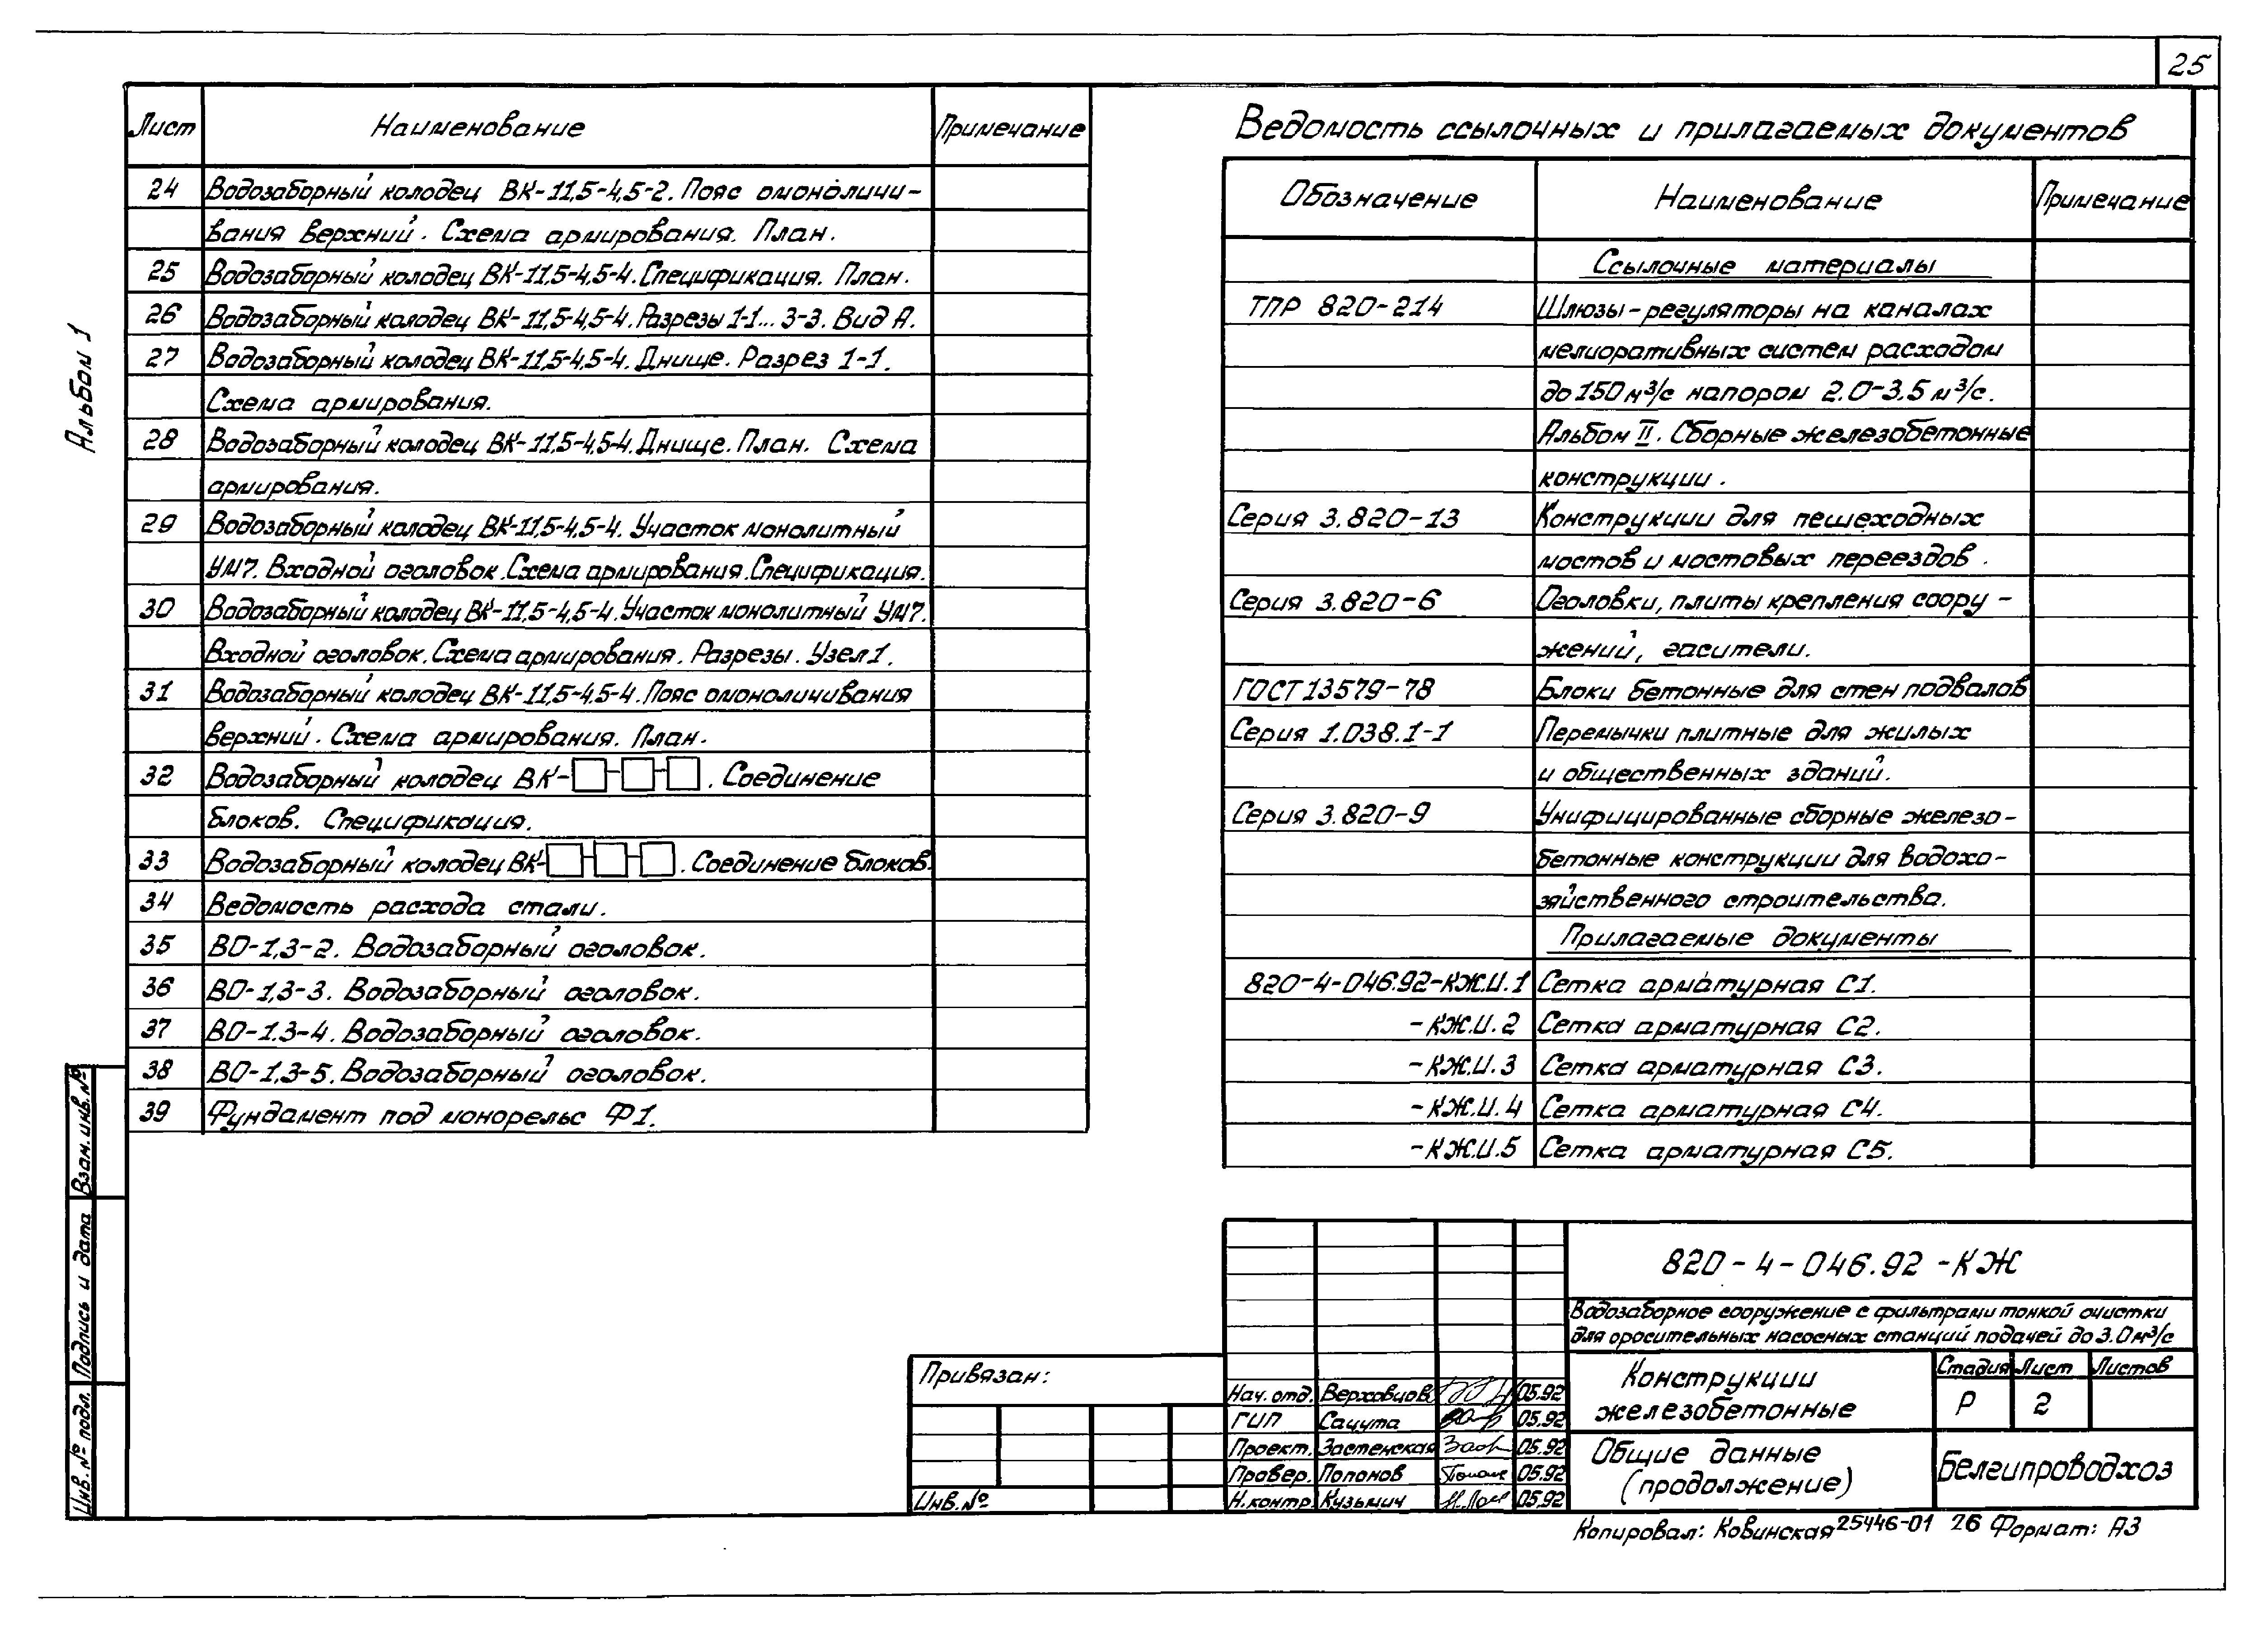 25
Альбом 1
Лист Наименование Примечание
24 Водозаборный колодец ВК-11,5-4,5-2. Пояс омоноличи-
вания верхний. Схема армирования. План.
25 Водозаборный колодец ВК-11,5-4,5-4. Спецификация. План.
26 Водозаборный колодец ВК-11,5-4,5-4. Разрезы 1-1... 3-3. Вид А.
27 Водозаборный колодец ВК-11,5-4,5-4. Днище. Разрез 1-1.
Схема армирования.
28 Водозаборный колодец ВК-11,5-4,5-4. Днище. План. Схема
армирования.
29 Водозаборный колодец ВК-11,5-4,5-4. Участок монолитный
УМ7. Входной оголовок. Схема армирования. Спецификация.
30 Водозаборный колодец ВК-11,5-4,5-4. Участок монолитный УМ7.
Входной оголовок. Схема армирования. Разрезы. Узел 1.
31 Водозаборный колодец ВК-11,5-4,5-4. Пояс омоноличивания
верхний. Схема армирования. План.
32 Водозаборный колодец ВК-□-□-□. Соединение
блоков. Спецификация.
33 Водозаборный колодец ВК-□-□-□. Соединение блоков.
34 Ведомость расхода стали.
35 ВО-1,3-2. Водозаборный оголовок.
36 ВО-1,3-3. Водозаборный оголовок.
37 ВО-1.3-4. Водозаборный оголовок.
38 ВО-1,3-5. Водозаборный оголовок.
39 Фундамент под монорельс Ф1.
Ведомость ссылочных и прилагаемых документов
Обозначение Наименование Примечание
Ссылочные материалы
ТПР 820-214 Шлюзы-регуляторы на каналах
мелиоративных систем расходом
до 150 м³/с напором 2.0-3,5 м³/с.
Альбом II. Сборные железобетонные
конструкции.
Серия 3.820-13 Конструкции для пешеходных
мостов и мостовых переездов.
Серия 3.820-6 Оголовки, плиты крепления соору-
жений, гасители.
ГОСТ 13579-78 Блоки бетонные для стен подвалов
Серия 1.038.1-1 Перемычки плитные для жилых
и общественных зданий.
Серия 3.820-9 Унифицированные сборные железо-
бетонные конструкции для водохо-
зяйственного строительства.
Прилагаемые документы
820-4-046.92-КЖ.И.1 Сетка арматурная С1.
-КЖ.И.2 Сетка арматурная С2.
-КЖ.И.3 Сетка арматурная С3.
-КЖ.И.4 Сетка арматурная С4.
-КЖ.И.5 Сетка арматурная С5.
Взам. инв. №
Подпись и дата
Инв. № подл.
Привязан:
Инв. №
Нач. отд. Верховцов 05.92
ГИП Сацута 05.92
Проект. Застенская 05.92
Провер. Попонов 05.92
Н. контр. Кузьмич 05.92
820-4-046.92-КЖ
Водозаборное сооружение с фильтрами тонкой очистки
для оросительных насосных станций подачей до 3.0 м³/с
Конструкции
железобетонные
Стадия Лист Листов
Р 2
Общие данные
(продолжение)
Белгипроводхоз
Копировал: Ковинская 25446-01 26 Формат: А3